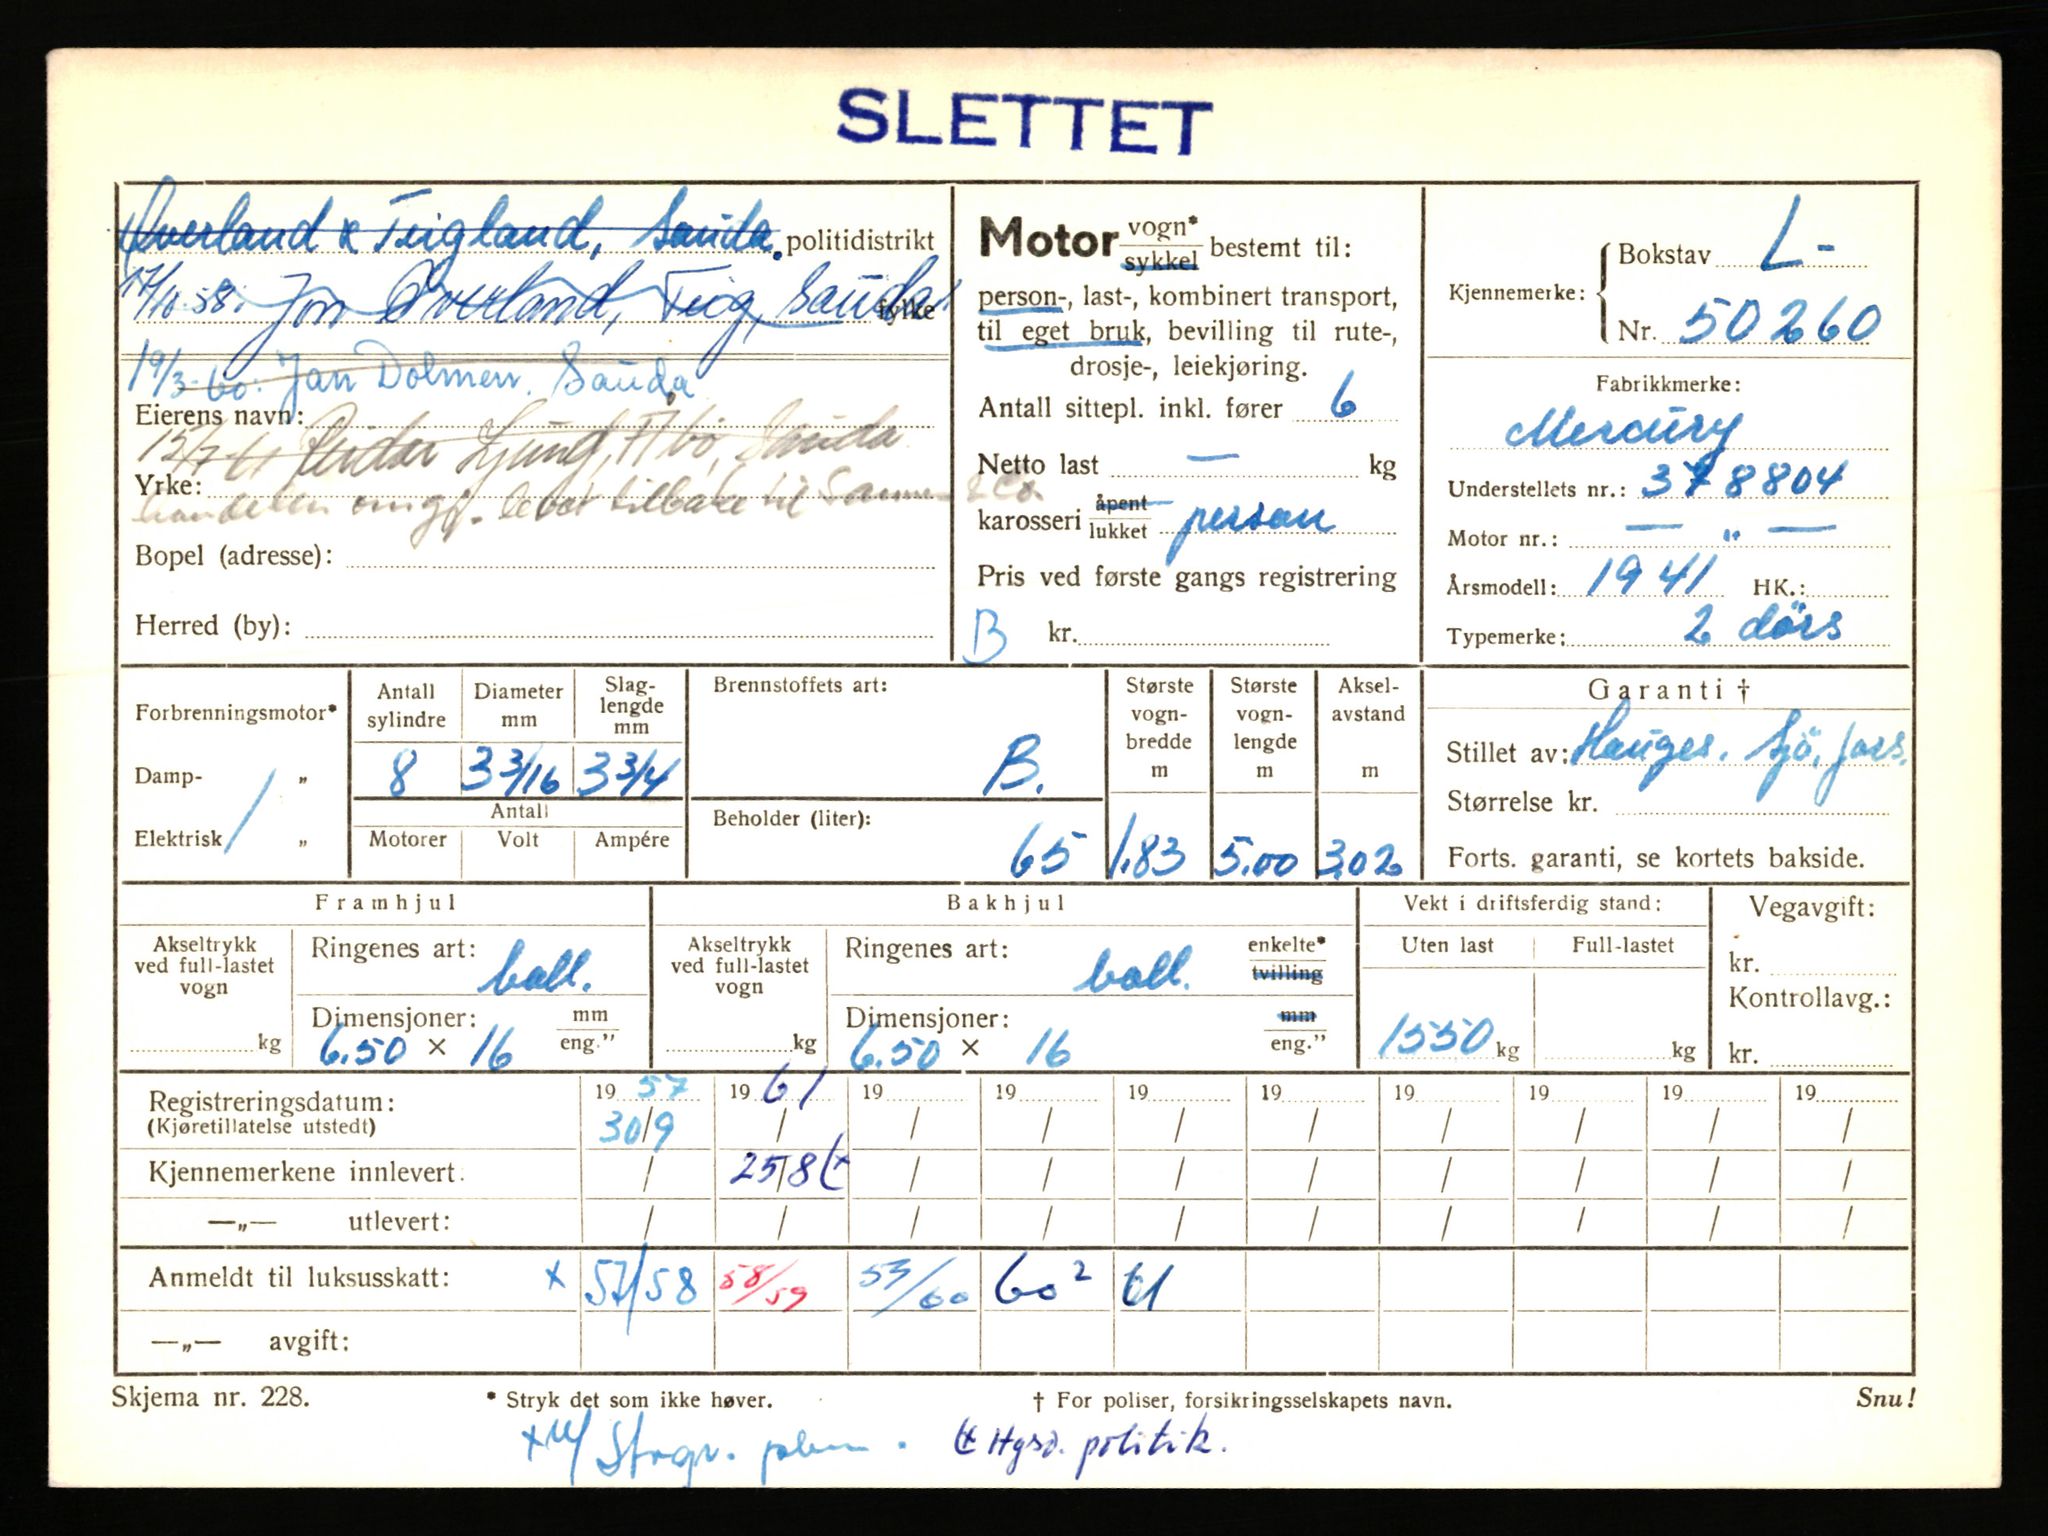 SLETTET
Øverland & Teigland, Sauda. politidistrikt
17/10.58. Jon Øverland, Teig, Sauda fylke
19/3-60. Jan Dolmen. Sauda
Eierens navn:
15/7-61 Reidar Ljung, Åbø, Sauda
Yrke:
handelen omgj. levert tilbake til & Co.
Bopel (adresse):
Herred (by):
Motor vogn* sykkel bestemt til:
person-, last-, kombinert transport,
til eget bruk, bevilling til rute-,
drosje-, leiekjøring.
Antall sittepl. inkl. fører 6
Netto last — kg
karosseri åpent lukket person
Pris ved første gangs registrering
B kr.
Kjennemerke: Bokstav L-
Nr. 50260
Fabrikkmerke:
Mercury
Understellets nr.: 378804
Motor nr.: — „ —
Årsmodell: 1941 HK.:
Typemerke: 2 dörs
Forbrenningsmotor*
Damp- „
Elektrisk „
Antall sylindre
8
Diameter mm
3 3/16
Slag-
lengde
mm
3 3/4
Antall
Motorer Volt Ampére
Brennstoffets art:
B.
Beholder (liter):
65
Største
vogn-
bredde
m
1.83
Største
vogn-
lengde
m
5.00
Aksel-
avstand
m
3.02
Garanti †
Stillet av: Hauges. Sjö. fors.
Størrelse kr.
Forts. garanti, se kortets bakside.
Framhjul
Akseltrykk
ved full-lastet
vogn
kg
Ringenes art:
ball.
Dimensjoner: mm
6.50 × 16 eng.”
Bakhjul
Akseltrykk
ved full-lastet
vogn
kg
Ringenes art: enkelte*
ball. tvilling
Dimensjoner: mm
6.50 × 16 eng.”
Vekt i driftsferdig stand:
Uten last Full-lastet
1550 kg kg
Vegavgift:
kr.
Kontrollavg.:
kr.
Registreringsdatum: 19 57 19 61 19 19 19 19 19 19 19 19
(Kjøretillatelse utstedt) 30/9 / / / / / / / / /
Kjennemerkene innlevert: / 25/8 / / / / / / / /
—„— utlevert: / / / / / / / / / /
Anmeldt til luksusskatt: x 57/58 58/59 53/60 60² 61
—„— avgift:
Skjema nr. 228. * Stryk det som ikke høver. † For poliser, forsikringsselskapets navn. Snu!
Hgsd. politik.